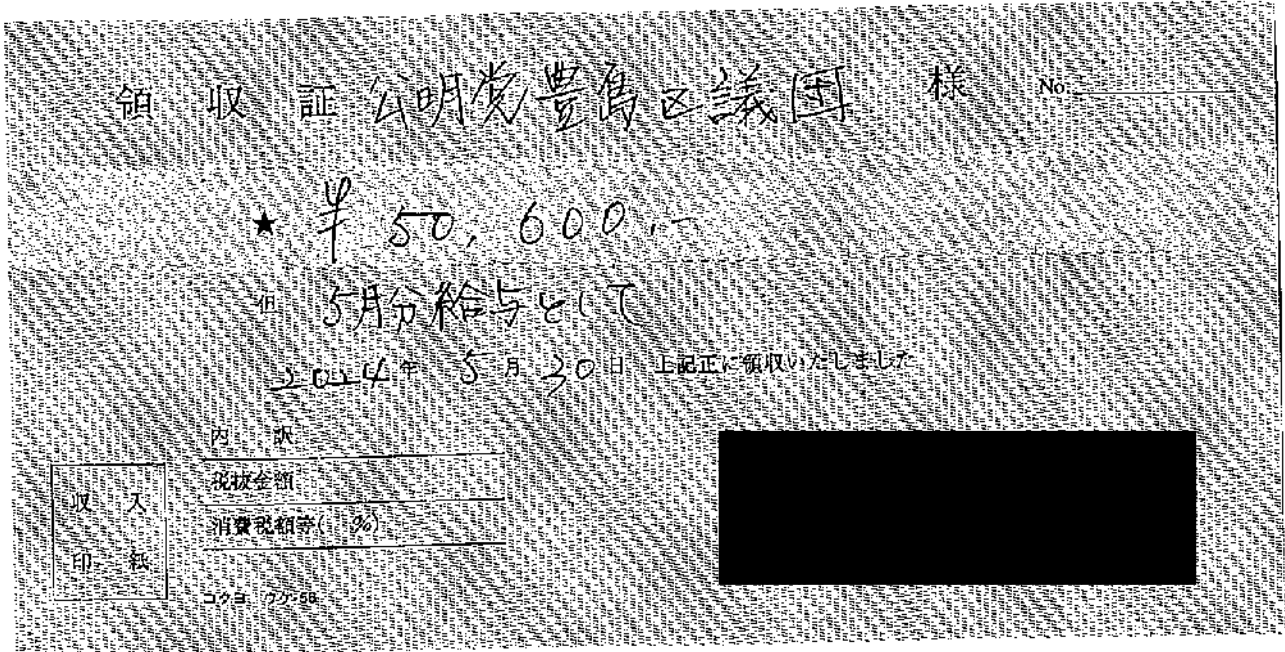 領収証 公明党豊島区議団 様 No.
★ ¥50,600.-
但 5月分給与として
2024年 5月 30日 上記正に領収いたしました
内訳
税抜金額
消費税額等( %)
収入
印紙
コクヨ ウケ-56